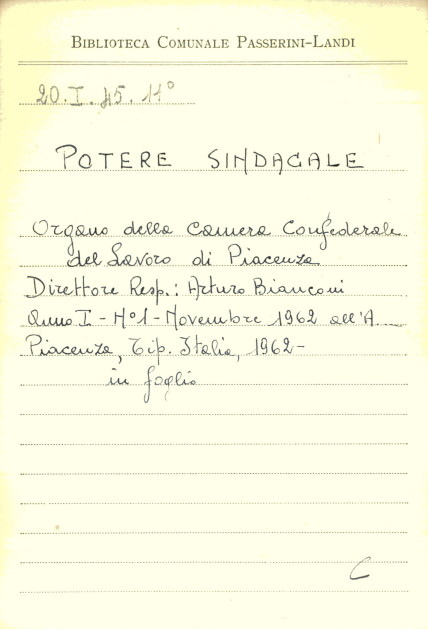 BIBLIOTECA COMUNALE PASSERINI-LANDI
20.I.45.11°
POTERE SINDACALE
Organo della Camera Confederale
del Lavoro di Piacenza
Direttore Resp.: Arturo Bianconi
Anno I - N°1 - Novembre 1962 all'A.
Piacenza, Tip. Italia, 1962-
in foglio
C